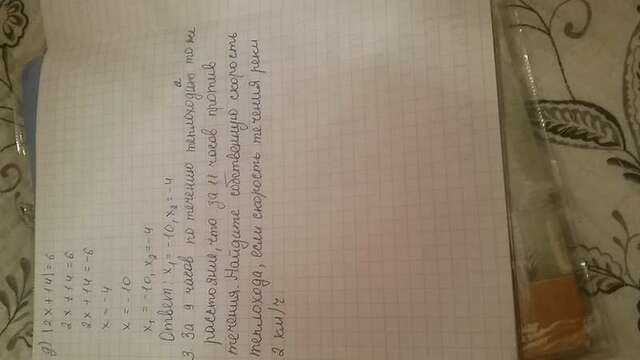 д) |2x+14|=6
2x+14=6
2x+14=-6
x=-4
x=-10
x₁=-10, x₂=-4
Ответ: x₁=-10, x₂=-4
3. За 9 часов по течению теплоход то же
расстояние, что за 11 часов против
течения. Найдите собственную скорость
теплохода, если скорость течения реки
2 км/ч